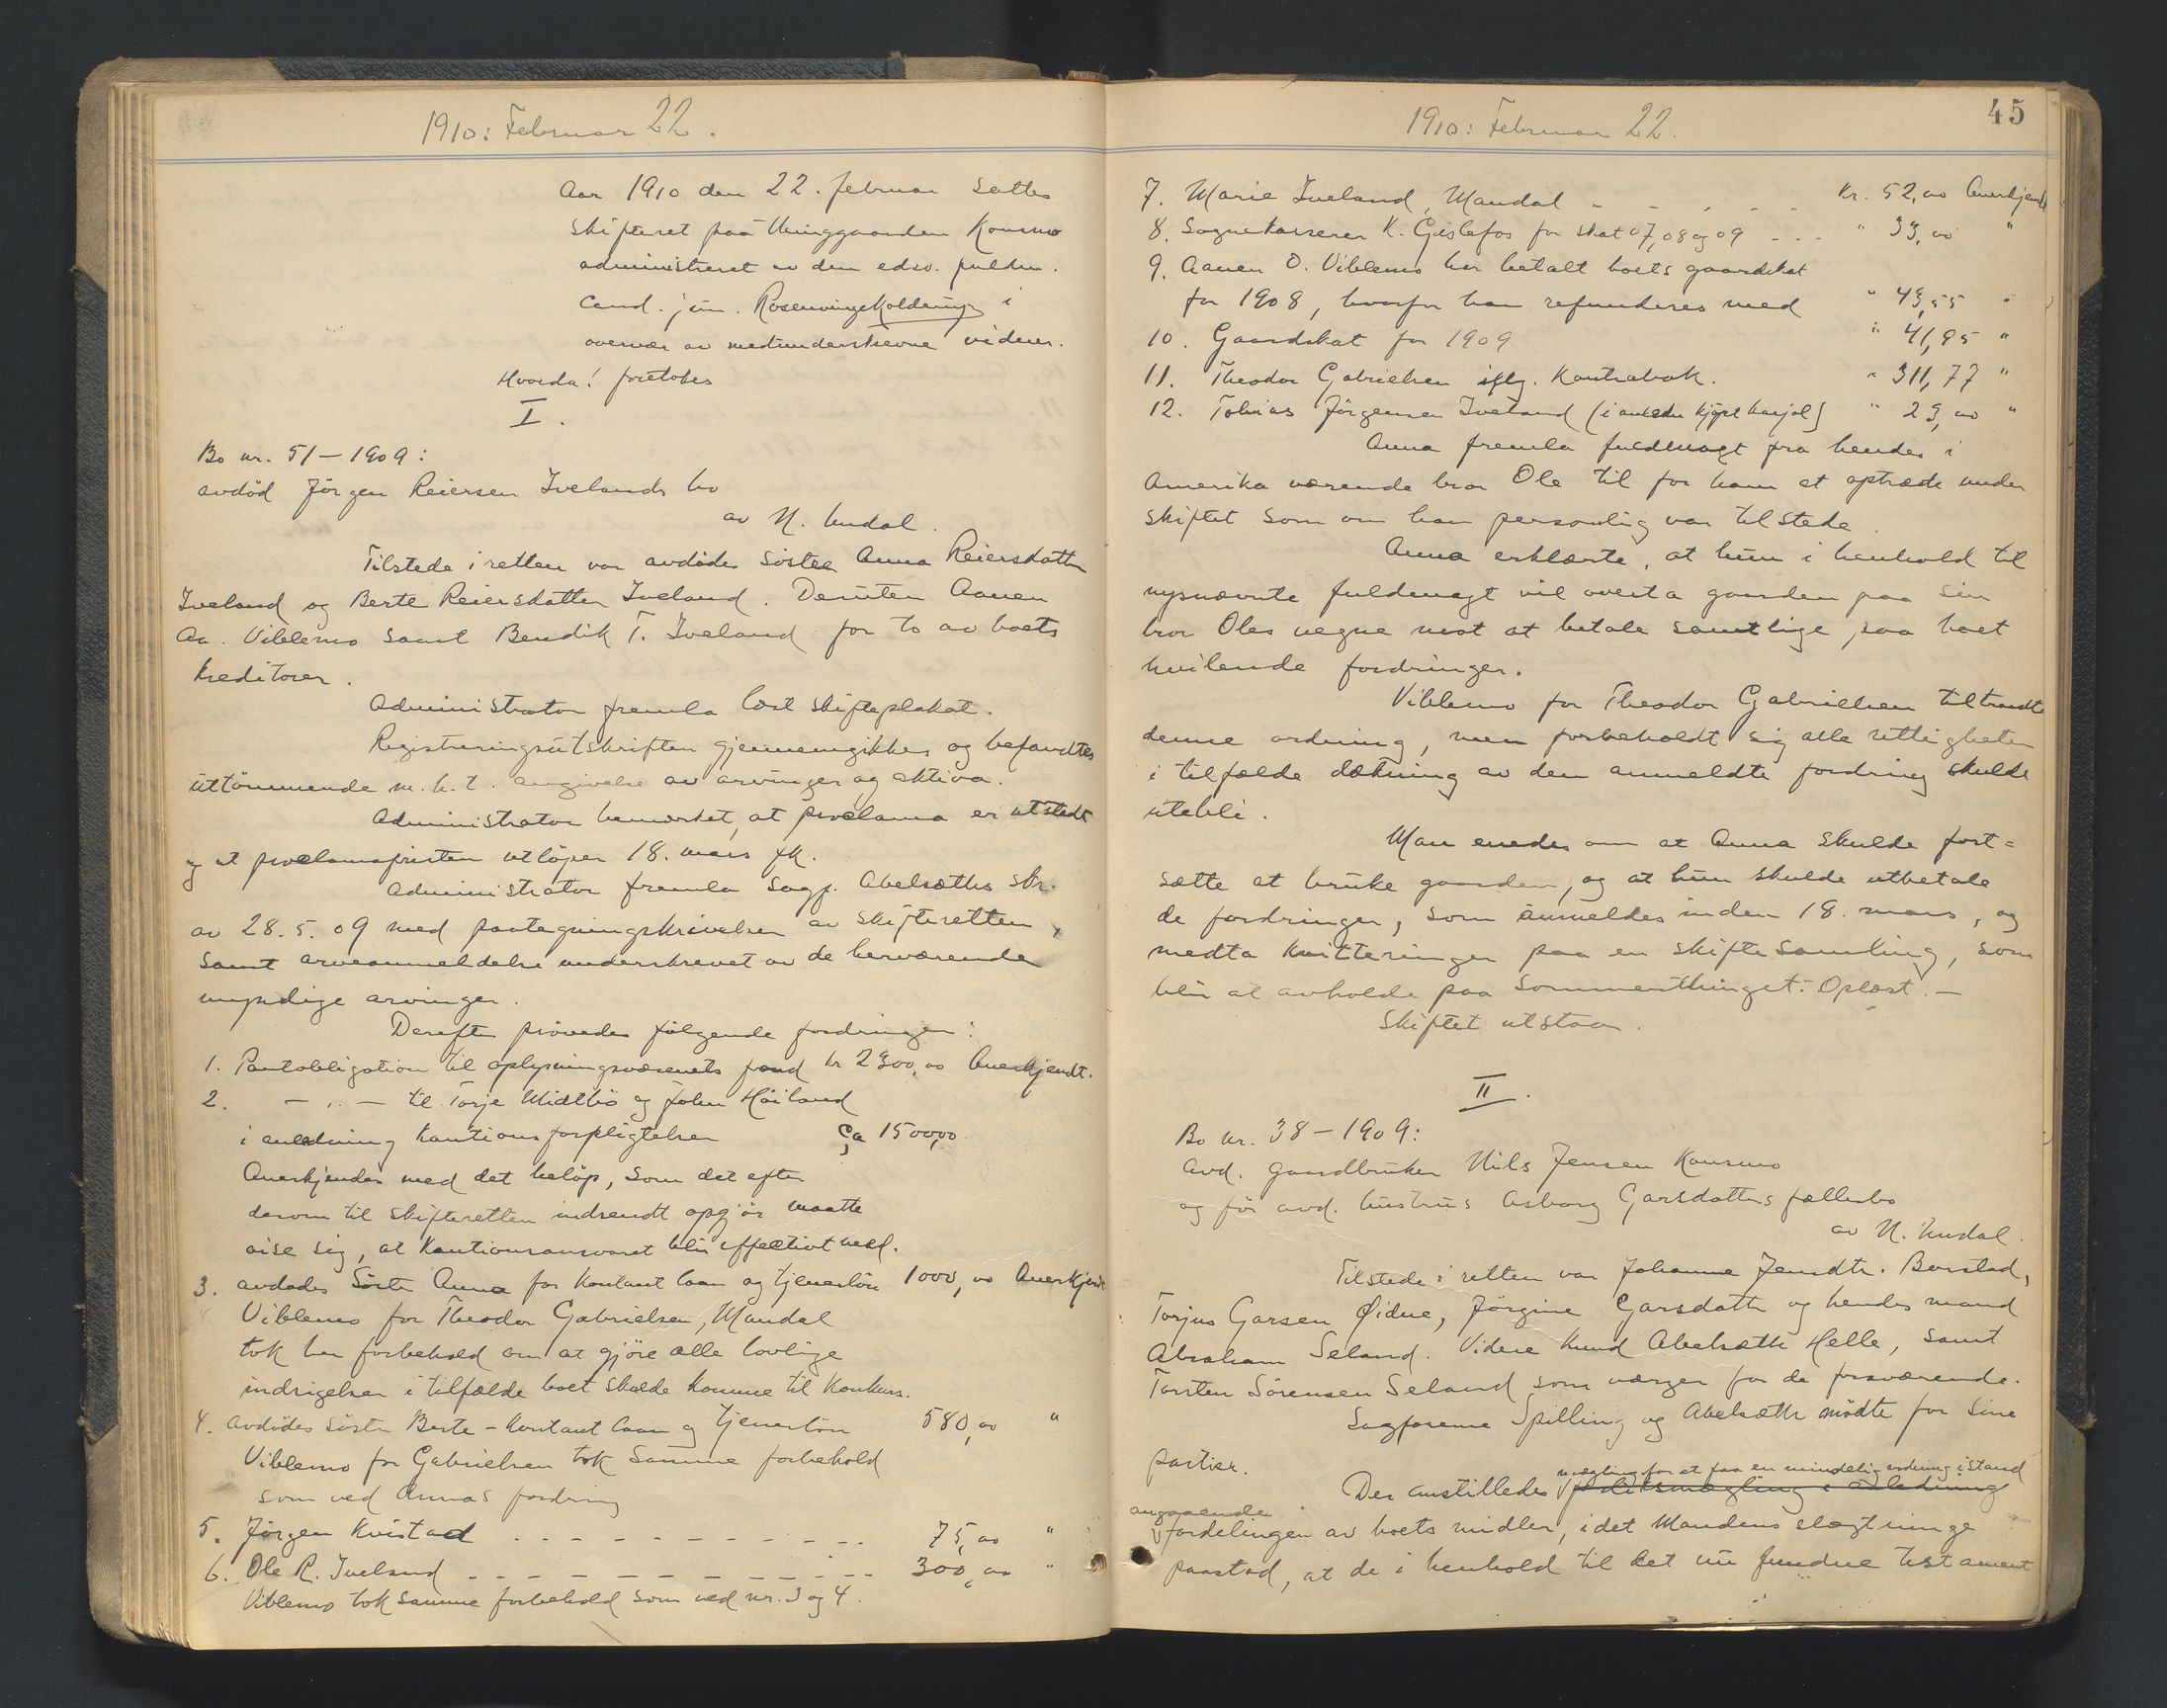 1910: Februar 22.
Aar 1910 den 22. februar sattes
skifteret paa thinggaarden Konsmo
administreret av den edsv. fuldm.
cand. jur. Rosenvinge Kolderup i
overvær av medunderskrevne vidner.
Hvorda! foretokes
I.
Bo nr. 51-1909:
avdöd Jörgen Reiersen Ivelands bo
av N. Undal.
Tilstede i retten var avdödes söster Anna Reiersdatter
Iveland og Berte Reiersdatter Iveland. Desuten Aanen
Aa. Viblemo samt Bendik T. Iveland for to av boets
kreditorer.
Administrator fremla læst skifteplakat.
Registreringsutskriften gjennemgikkes og befandtes
uttömmende m. h. t. angivelse av arvinger og aktiva.
Administrator bemerket, at proclama er utstedt
og at proclamafristen utlöper 18. mars fk.
Administrator fremla sagf. Abelsæths skr.
av 28.5.09 med paategningskrivelser av skifteretten,
samt arveanmeldelse underskrevet av de herværende
myndige arvinger.
Derefter prövedes fölgende fordringer:
1. Pantobligation til oplysningsvæsenets fond kr 2300,00 Anerkjendt.
2. — „ — til Torje Midtbö og John Höiland
i anledning kautionsforpligtelser ca 1500,00
Anerkjendes med det belöp, som det efter
derom til skifteretten indsendt opgjör maatte
vise sig, at kautionsansvaret blir effectivt ved.
3. avdödes söster Anna for kontant laan og tjenerlön 1000,00 Anerkjendt
Viblemo for Theodor Gabrielsen, Mandal
tok her forbehold om at gjöre alle lovlige
indsigelser i tilfælde boet skulde komme til konkurs.
4. avdödes söster Berte - kontant laan og tjenerlön 580,00 "
Viblemo for Gabrielsen tok samme forbehold
som ved Annas fordring
5. Jörgen Kvistad - - - - - - - - - 75,00 "
6. Ole R. Iveland - - - - - - - - - 300,00 "
Viblemo tok samme forbehold som ved nr. 3 og 4.
45
1910: Februar 22.
7. Marie Iveland, Mandal - - - - - Kr. 52,00 Anerkjendt
8. Sognekasserer K. Gislefos for skat 07, 08 og 09 - - - " 33,00 "
9. Aanen O. Viblemo har betalt boets gaardskat
for 1908, hvorfor han refunderes med " 43,55 "
10. Gaardskat for 1909 " 41,95 "
11. Theodor Gabrielsen iflg. kontrabok. " 311,77 "
12. Tobias Jörgensen Iveland (i anledn kjöpt hesjol) " 23,00 "
Anna fremla fuldmagt fra hendes i
Amerika værende bror Ole til for ham at optræde under
skiftet som om han personlig var tilstede.
Anna erklærte, at hun i henhold til
nysnævnte fuldmagt vil overta gaarden paa sin
bror Oles vegne mot at betale samtlige, paa boet
hvilende fordringer.
Viblemo for Theodor Gabrielsen tiltraadte
denne ordning, men forbeholdt sig alle rettigheter
i tilfælde dækning av den anmeldte fordring skulde
utebli.
Man enedes om at Anna skulde fort=
sætte at bruke gaarden, og at hun skulde utbetale
de fordringer, som anmeldes inden 18. mars, og
medta kvitteringer paa en skiftesamling, som
blir at avholde paa sommerthinget. Oplæst. —
Skiftet utstaar.
II.
Bo nr. 38-1909:
Avd. gaardbruker Nils Jensen Konsmo
og för avd. hustrus Asborg Garsdatters fællesbo
av N. Undal.
Tilstede i retten var Johanne Jensdtr. Borstad,
Torjus Garsen Øidne, Jörgine Garsdatter og hendes mand
Abraham Seland. Videre Knud Abelsæth Helle, samt
Torsten Sörensen Seland som værger for de fraværende.
Sagförerne Spilling og Abelsæth mödte for sine
partier.
mægling for at faa en mindelig ordning istand
Der anstilledes forliksmægling i anledning
angaaende
fordelingen av boets midler, idet Mandens slægtninge
paastod, at de i henhold til det nu fundne testament